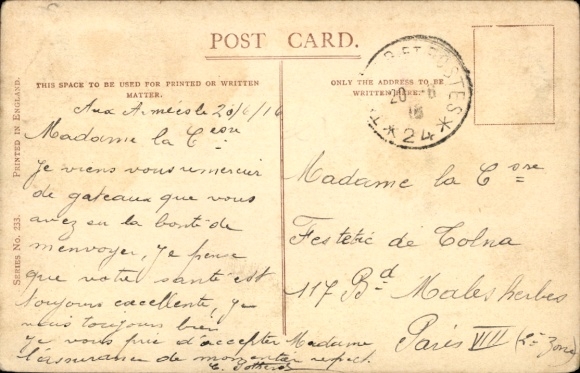 POST CARD.
THIS SPACE TO BE USED FOR PRINTED OR WRITTEN
MATTER.
ONLY THE ADDRESS TO BE
WRITTEN HERE.
PRINTED IN ENGLAND.
SERIES No. 233.
ET POSTES
20 - 6
16
* 24 *
Aux Armées le 20/6/16
Madame la Csse
Je viens vous remercier
de gateaux que vous
avez eu la bonté de
m'envoyer, Je pense
que votre santé est
toujours excellente, Je
suis toujours bien
Je vous prie d'accepter Madame
l'assurance de mon entier respect.
Madame la Csse
Festetic de Tolna
117 Bd Malesherbes
Paris VIII